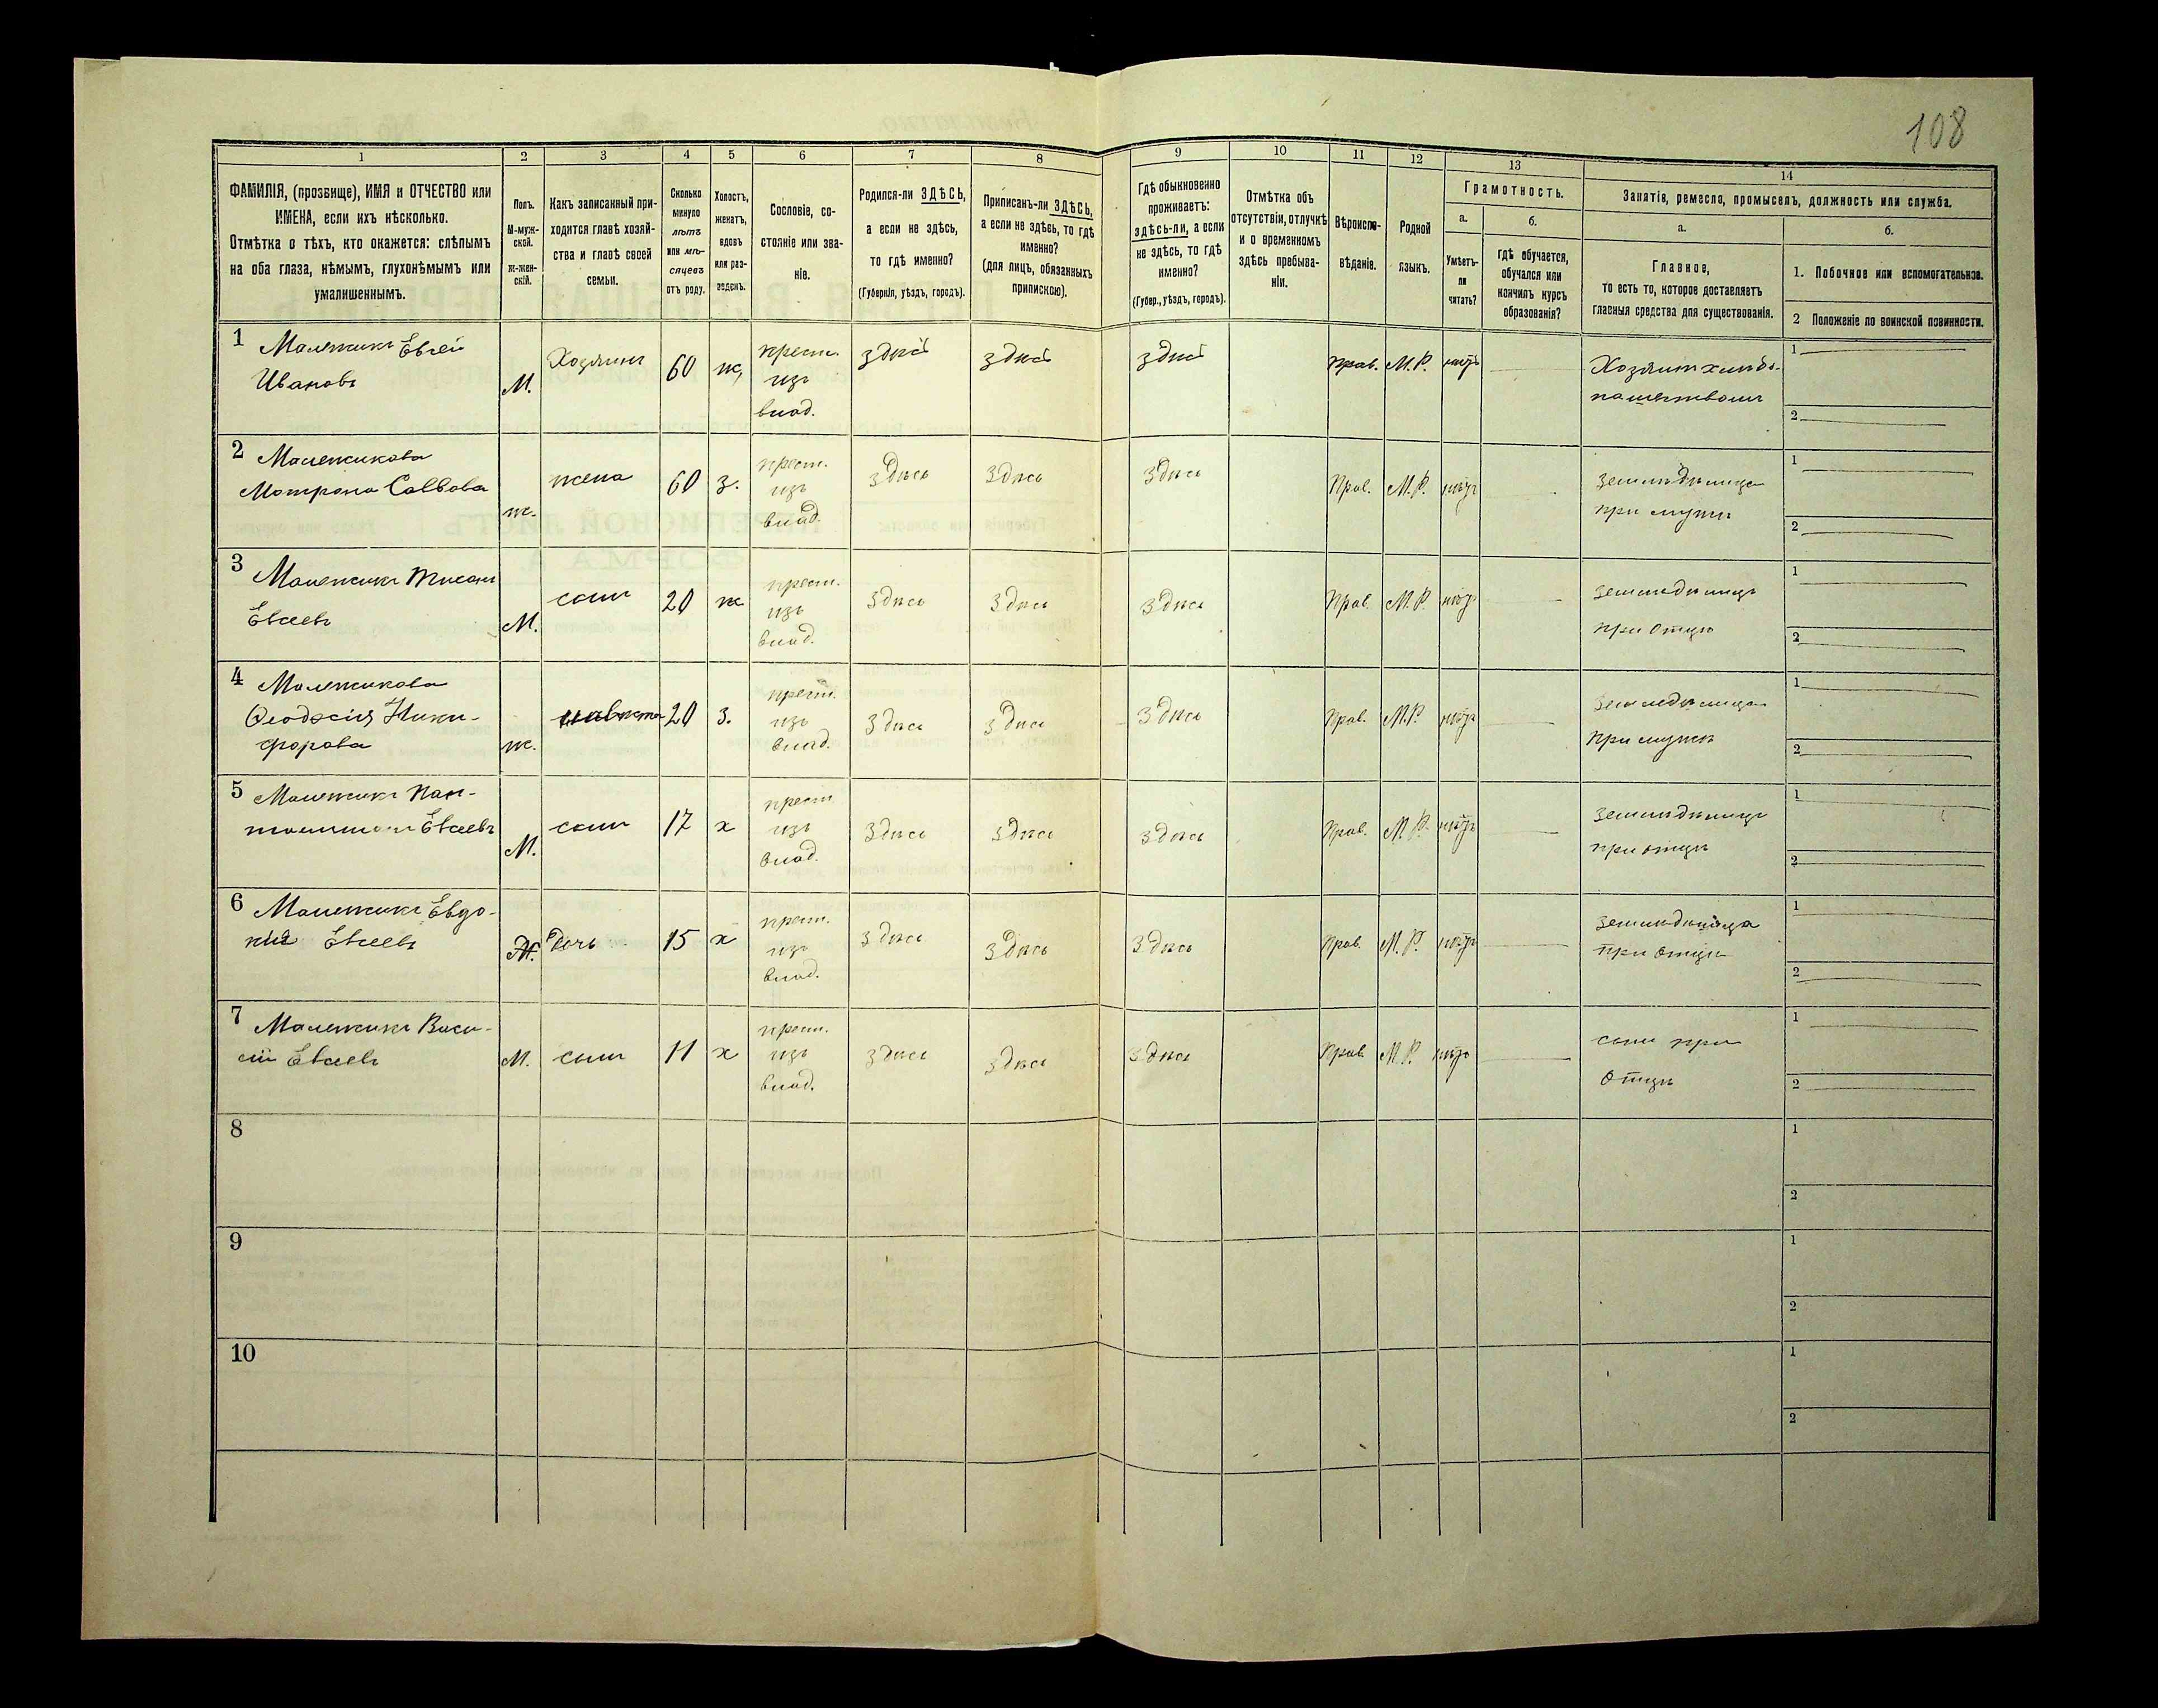 108
1 2 3 4 5 6 7 8 9 10 11 12 13 14
ФАМИЛІЯ, (прозвище), ИМЯ и ОТЧЕСТВО или
ИМЕНА, если ихъ нѣсколько.
Отмѣтка о тѣхъ, кто окажется: слѣпымъ
на оба глаза, нѣмымъ, глухонѣмымъ или
умалишеннымъ.
Полъ.
М-муж-
ской.
ж-жен-
скій.
Какъ записанный при-
ходится главѣ хозяй-
ства и главѣ своей
семьи.
Сколько
минуло
лѣтъ
или мѣ-
сяцевъ
отъ роду.
Холостъ,
женатъ,
вдовъ
или раз-
веденъ.
Сословіе, со-
стояніе или зва-
ніе.
Родился-ли ЗДѢСЬ,
а если не здѣсь,
то гдѣ именно?
(Губернія, уѣздъ, городъ).
Приписанъ-ли ЗДѢСЬ,
а если не здѣсь, то гдѣ
именно?
(для лицъ, обязанныхъ
припискою).
Гдѣ обыкновенно
проживаетъ:
здѣсь-ли, а если
не здѣсь, то гдѣ
именно?
(Губер., уѣздъ, городъ).
Отмѣтка объ
отсутствіи, отлучкѣ
и о временномъ
здѣсь пребыва-
ніи.
Вѣроиспо-
вѣданіе.
Родной
языкъ.
Грамотность.
а.
Умѣетъ-
ли
читать?
б.
гдѣ обучается,
обучался или
кончилъ курсъ
образованія?
Занятіе, ремесло, промыселъ, должность или служба.
а.
Главное,
то есть то, которое доставляетъ
главныя средства для существованія.
б.
1. Побочное или вспомогательное.
2 Положеніе по воинской повинности.
1 Малежикъ Евсей
Ивановъ
М.
Хозяинъ
60
ж.
крест.
изъ
влад.
здѣсь
здѣсь
здѣсь
Прав.
М.Р.
нѣтъ
Хозяинъ хлѣбо-
пашествомъ
1
2
2 Малежикова
Мотрона Саввова
ж.
жена
60
з.
крест.
изъ
влад.
здѣсь
здѣсь
здѣсь
Прав.
М.Р.
нѣтъ
земледѣлица
при мужѣ
1
2
3 Малежикъ
Евсеевъ
М.
сынъ
20
ж
крест.
изъ
влад.
здѣсь
здѣсь
здѣсь
Прав.
М.Р.
нѣтъ
земледѣлецъ
при отцѣ
1
2
4 Малежикова
Ѳеодосія Ники-
форова
ж.
невѣстка
20
з.
крест.
изъ
влад.
здѣсь
здѣсь
здѣсь
Прав.
М.Р.
нѣтъ
земледѣлица
при мужѣ
1
2
5 Малежикъ Пан-
Евсеевъ
М.
сынъ
17
х
крест.
изъ
влад.
здѣсь
здѣсь
здѣсь
Прав.
М.Р.
нѣтъ
земледѣлецъ
при отцѣ
1
2
6 Малежикъ Евдо-
кія Евсеевъ
Ж.
Дочь
15
х
крест.
изъ
влад.
здѣсь
здѣсь
здѣсь
Прав.
М.Р.
нѣтъ
земледѣлица
при отцѣ
1
2
7 Малежикъ Васи-
лій Евсеевъ
М.
сынъ
11
х
крест.
изъ
влад.
здѣсь
здѣсь
здѣсь
Прав.
М.Р.
нѣтъ
сынъ при
отцѣ
1
2
8
1
2
9
1
2
10
1
2